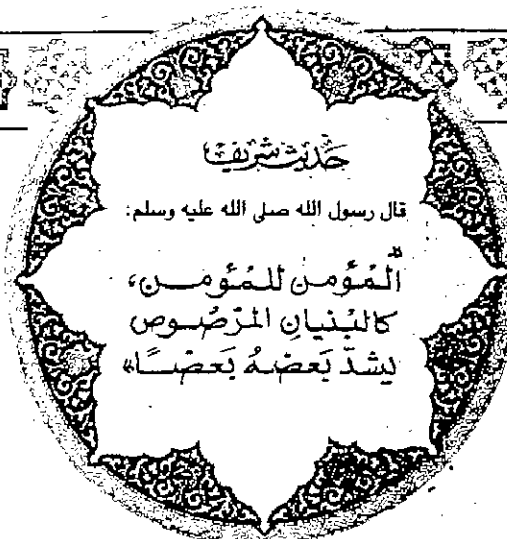 حديث شريف
قال رسول الله صلى الله عليه وسلم:
"الْمُؤمن للمُؤمـن،
كالبُنيانِ المَرْصُـوص
يشدّ بَعضهُ بَعضًـا"